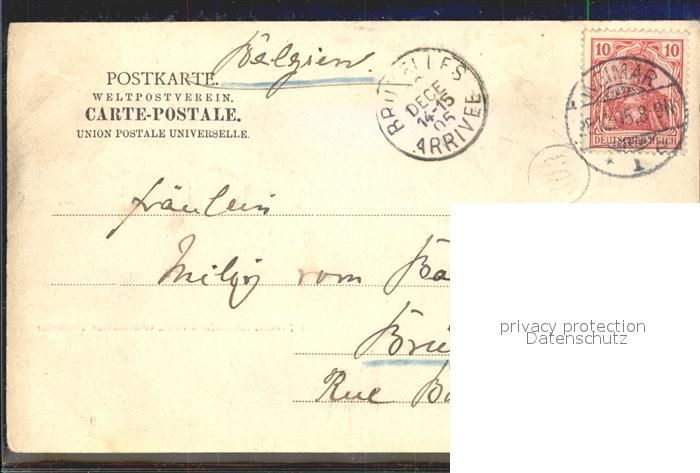 Belgien.
POSTKARTE.
WELTPOSTVEREIN.
CARTE-POSTALE.
UNION POSTALE UNIVERSELLE.
BRUXELLES
DECE
14-15
05
ARRIVEE
10 10
DEUTSCHES REICH
WEIMAR
1
Fräulein
vom
Rue
privacy protection
Datenschutz